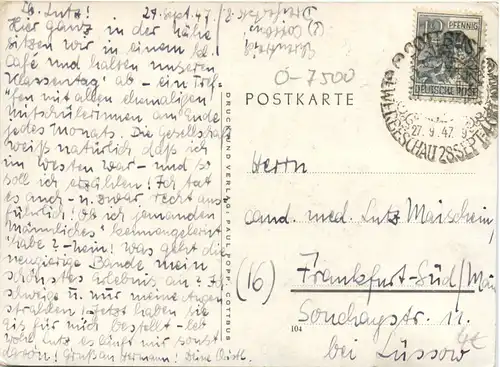 Lb. Lutz! 27. Sept. 47.
Hier ganz in der Nähe
sitzen wir in einem kl.
Café und halten unseren
"Klassentag" ab - ein Tref-
fen mit allen ehemaligen
Mitschülerinnen am Ende
jedes Monats. Die Gesellschaft
weiß natürlich daß ich
im Westen war - und so
soll ich erzählen! Ich tat
es auch - u. zwar recht aus-
führlich! Ob ich jemanden
Männliches kennengelernt
habe? - nein! Was geht die
neugierige Bande mein
schönstes Erlebnis an? Ich
schweige u. nur meine Augen
strahlen! Jetzt haben sie
für mich bestellt - leb
wohl Lutz es läuft mir sonst
davon! Gruß an Hermann! Deine
Cottbus
Ö-7500
DRUCK UND VERLAG: PAUL POPP, COTTBUS
POSTKARTE
12 PFENNIG
DEUTSCHE POST
27. 9. 47.
Herrn
cand. med. Lutz Maischein,
(16) Frankfurt-Süd/Main
Sondhaystr. 11
bei Lüssow
104
4€